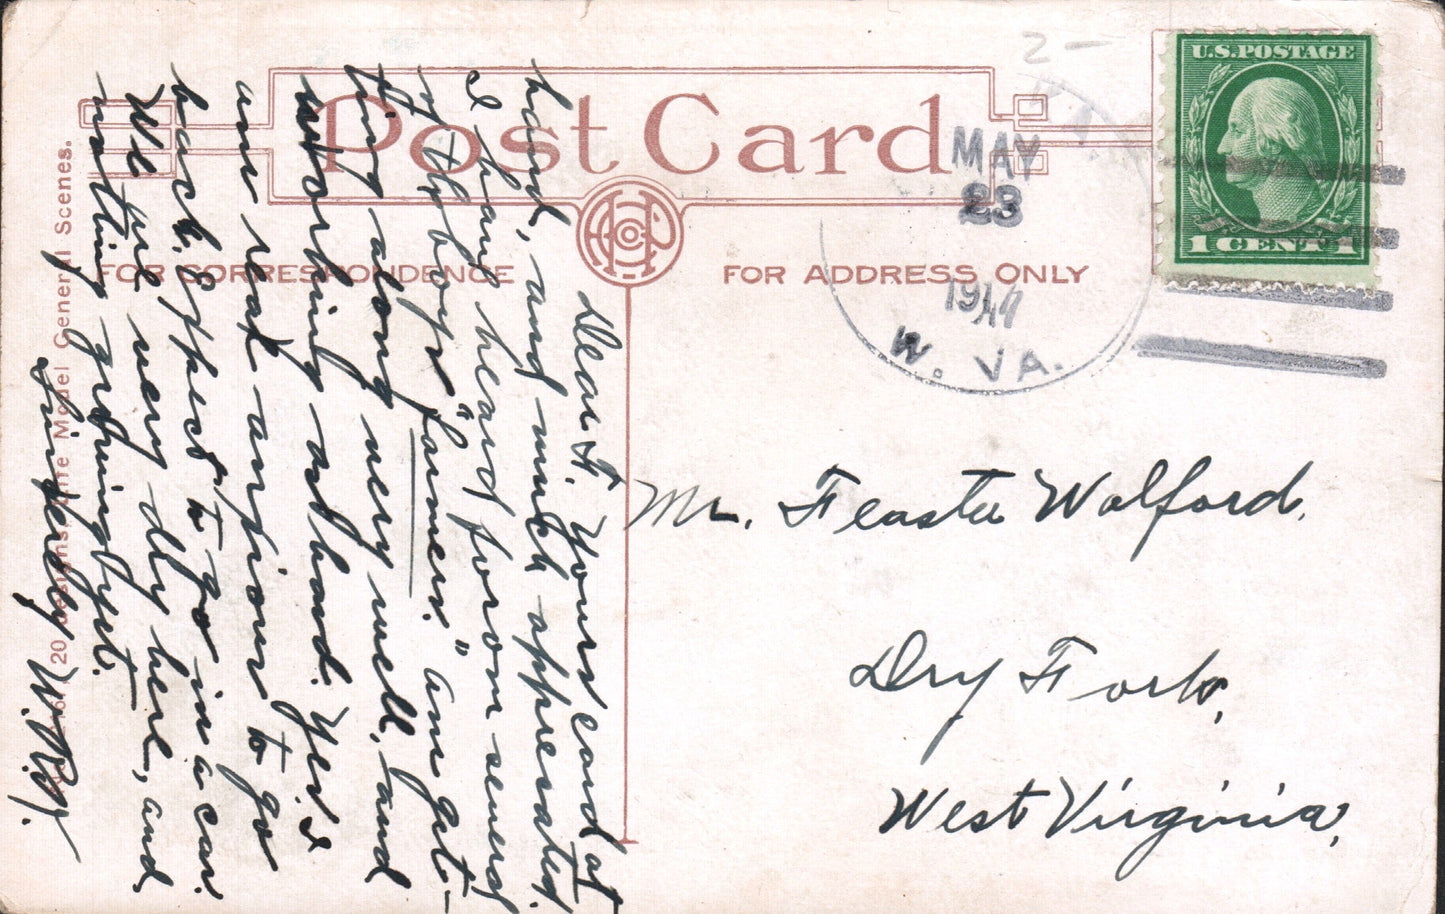 Post Card
FOR CORRESPONDENCE
FOR ADDRESS ONLY
U.S. POSTAGE
1 CENT 1
2 –
MAY
23
19
W. VA.
Mr. Feaster Wolford.
Dry Fork,
West Virginia,
Dear F. Yours card at
hand, and much appresiated.
I have heard from several
of the boys "farmers." am get-
ting along very well, and
working as hand. Yes I
am real anxious to go
back. Expect to go in a car.
We are very dry here, and
nothing growing yet.
Sincerely W.R.
20 designs Model General Scenes.